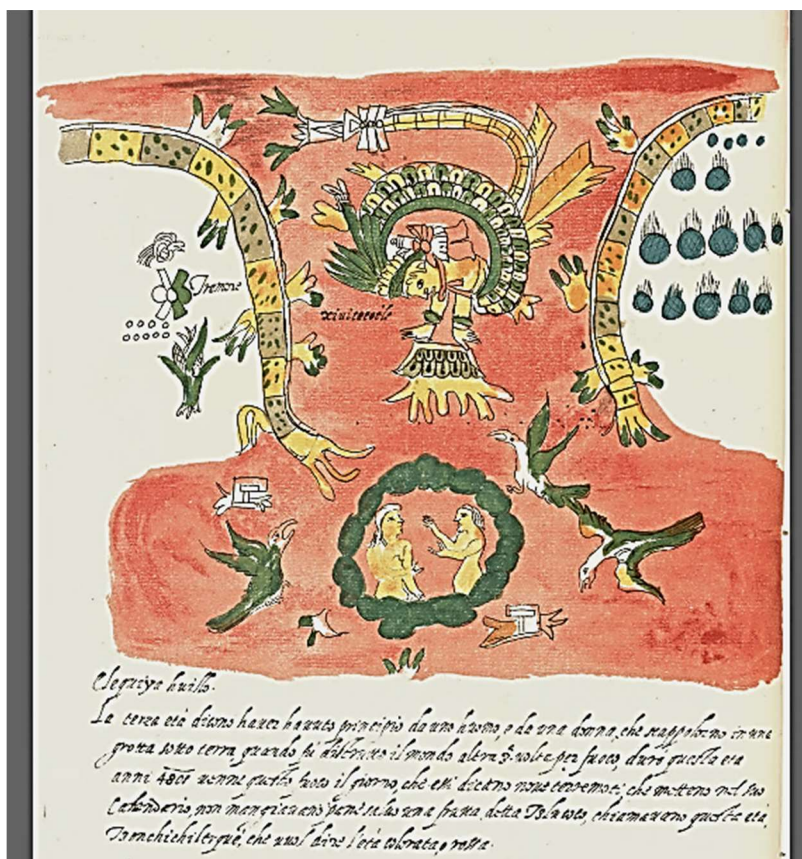 Tremore
xiuitecotle
Clequiya huillo.
La terza età dicono haver havuto principio da uno huomo, e da una donna, che scapporono in una
grotta sotto terra, quando fù distrutto il mondo altra volta per fuoco, durò questa eta
anni venne questo fuoco il giorno, che essi dicano nove tremoti, che mettono nel suo
Calendario, non mangiavano pane se no una frutta detta chiamavano questa eta,
che vuol dire l'età colorata, o rossa.